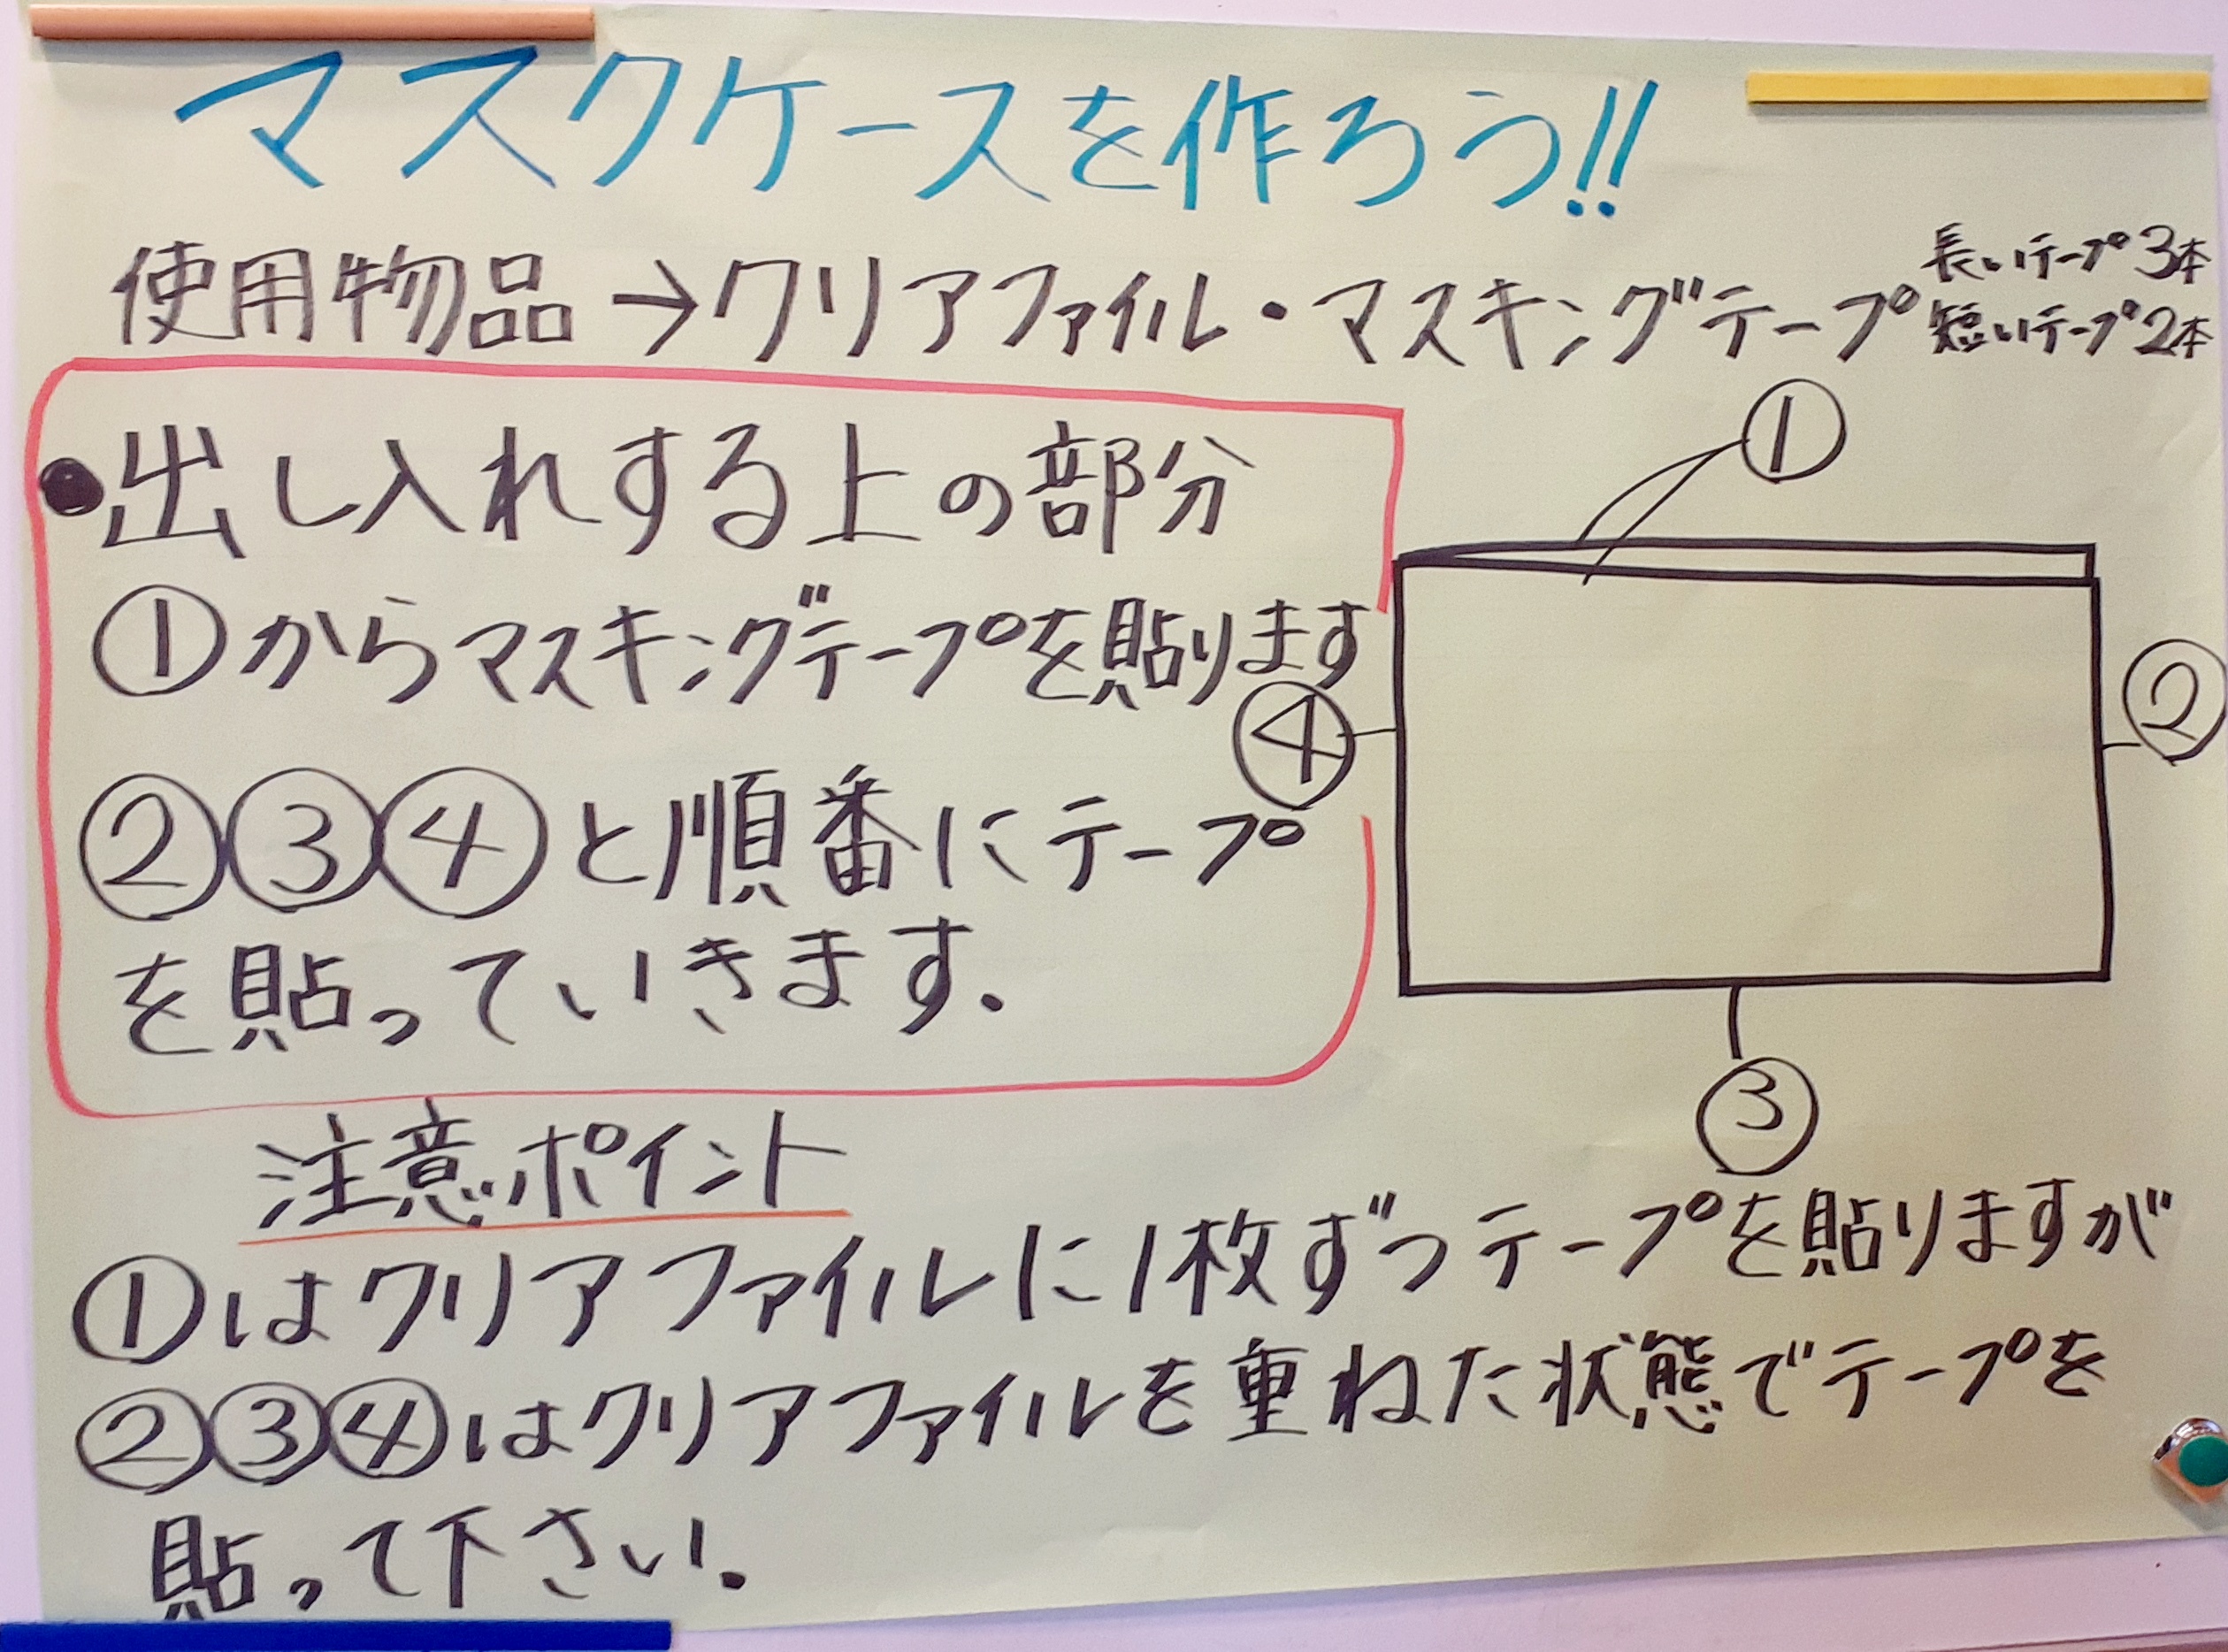 マスクケースを作ろう!!
使用物品→クリアファイル・マスキングテープ
長いテープ3本
短いテープ2本
●出し入れする上の部分
①からマスキングテープを貼ります
②③④と順番にテープ
を貼っていきます.
①
②
④
③
注意ポイント
①はクリアファイルに1枚ずつテープを貼りますが
②③④はクリアファイルを重ねた状態でテープを
貼って下さい.